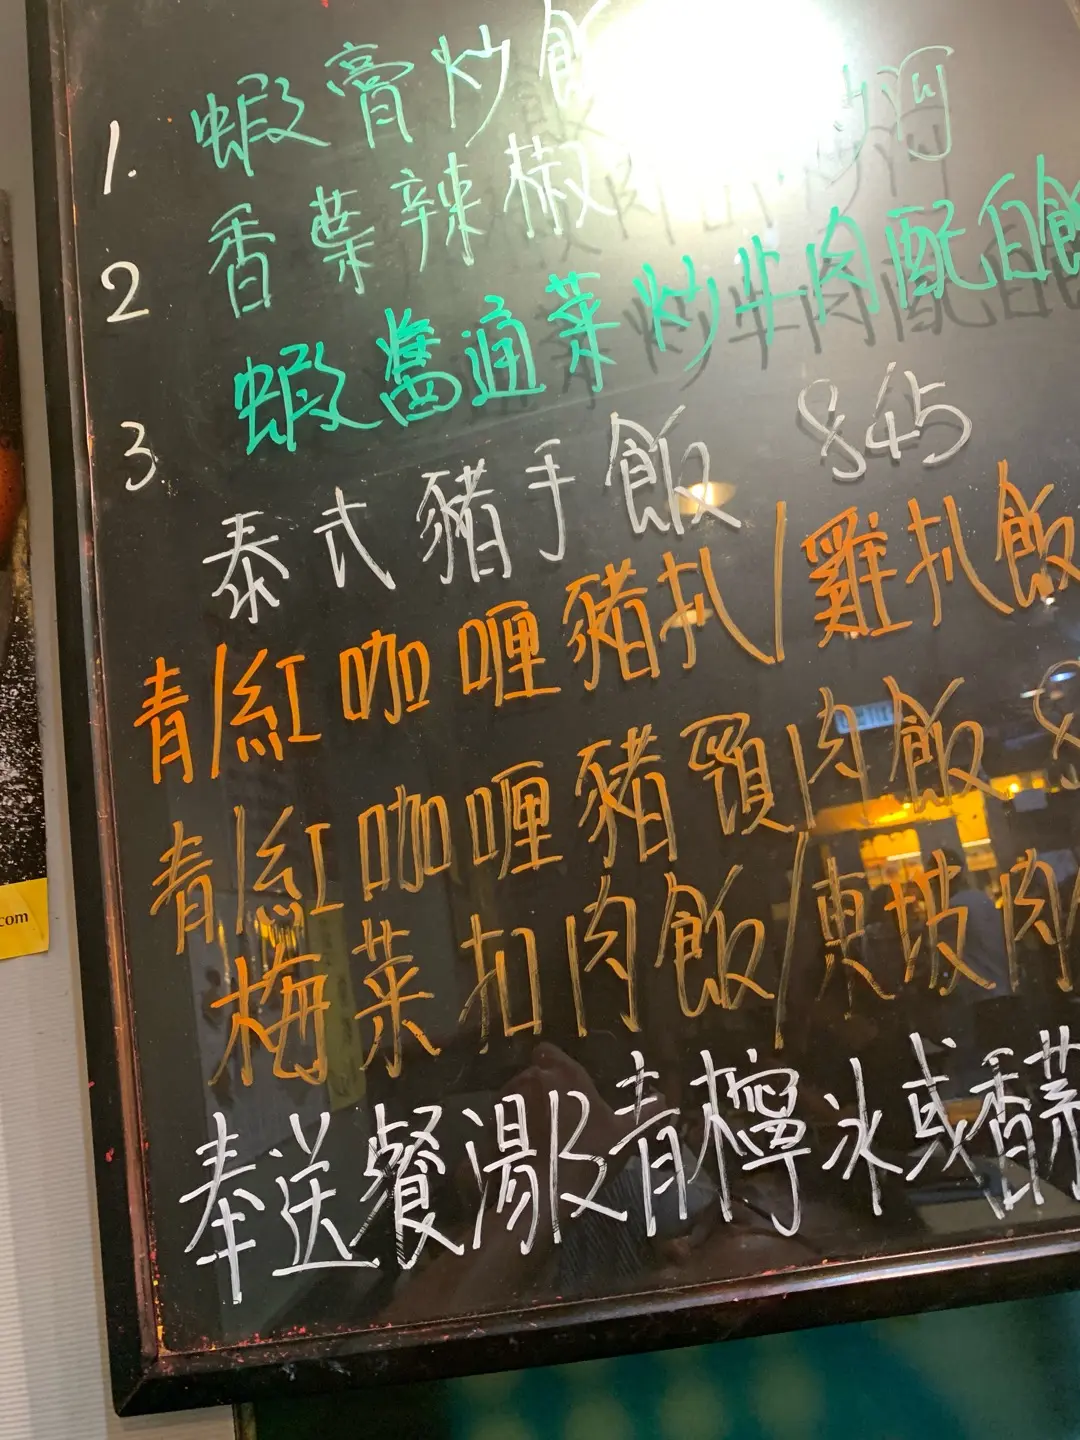 1. 蝦膏炒飯
2 香葉辣椒 炒河
3 蝦醬通菜炒牛肉配白飯
泰式豬手飯 $45
青/紅咖喱豬扒/雞扒飯
青/紅咖喱豬頸肉飯 $
梅菜扣肉飯/東坡肉
奉送餐湯及青檸冰或香茅
.com